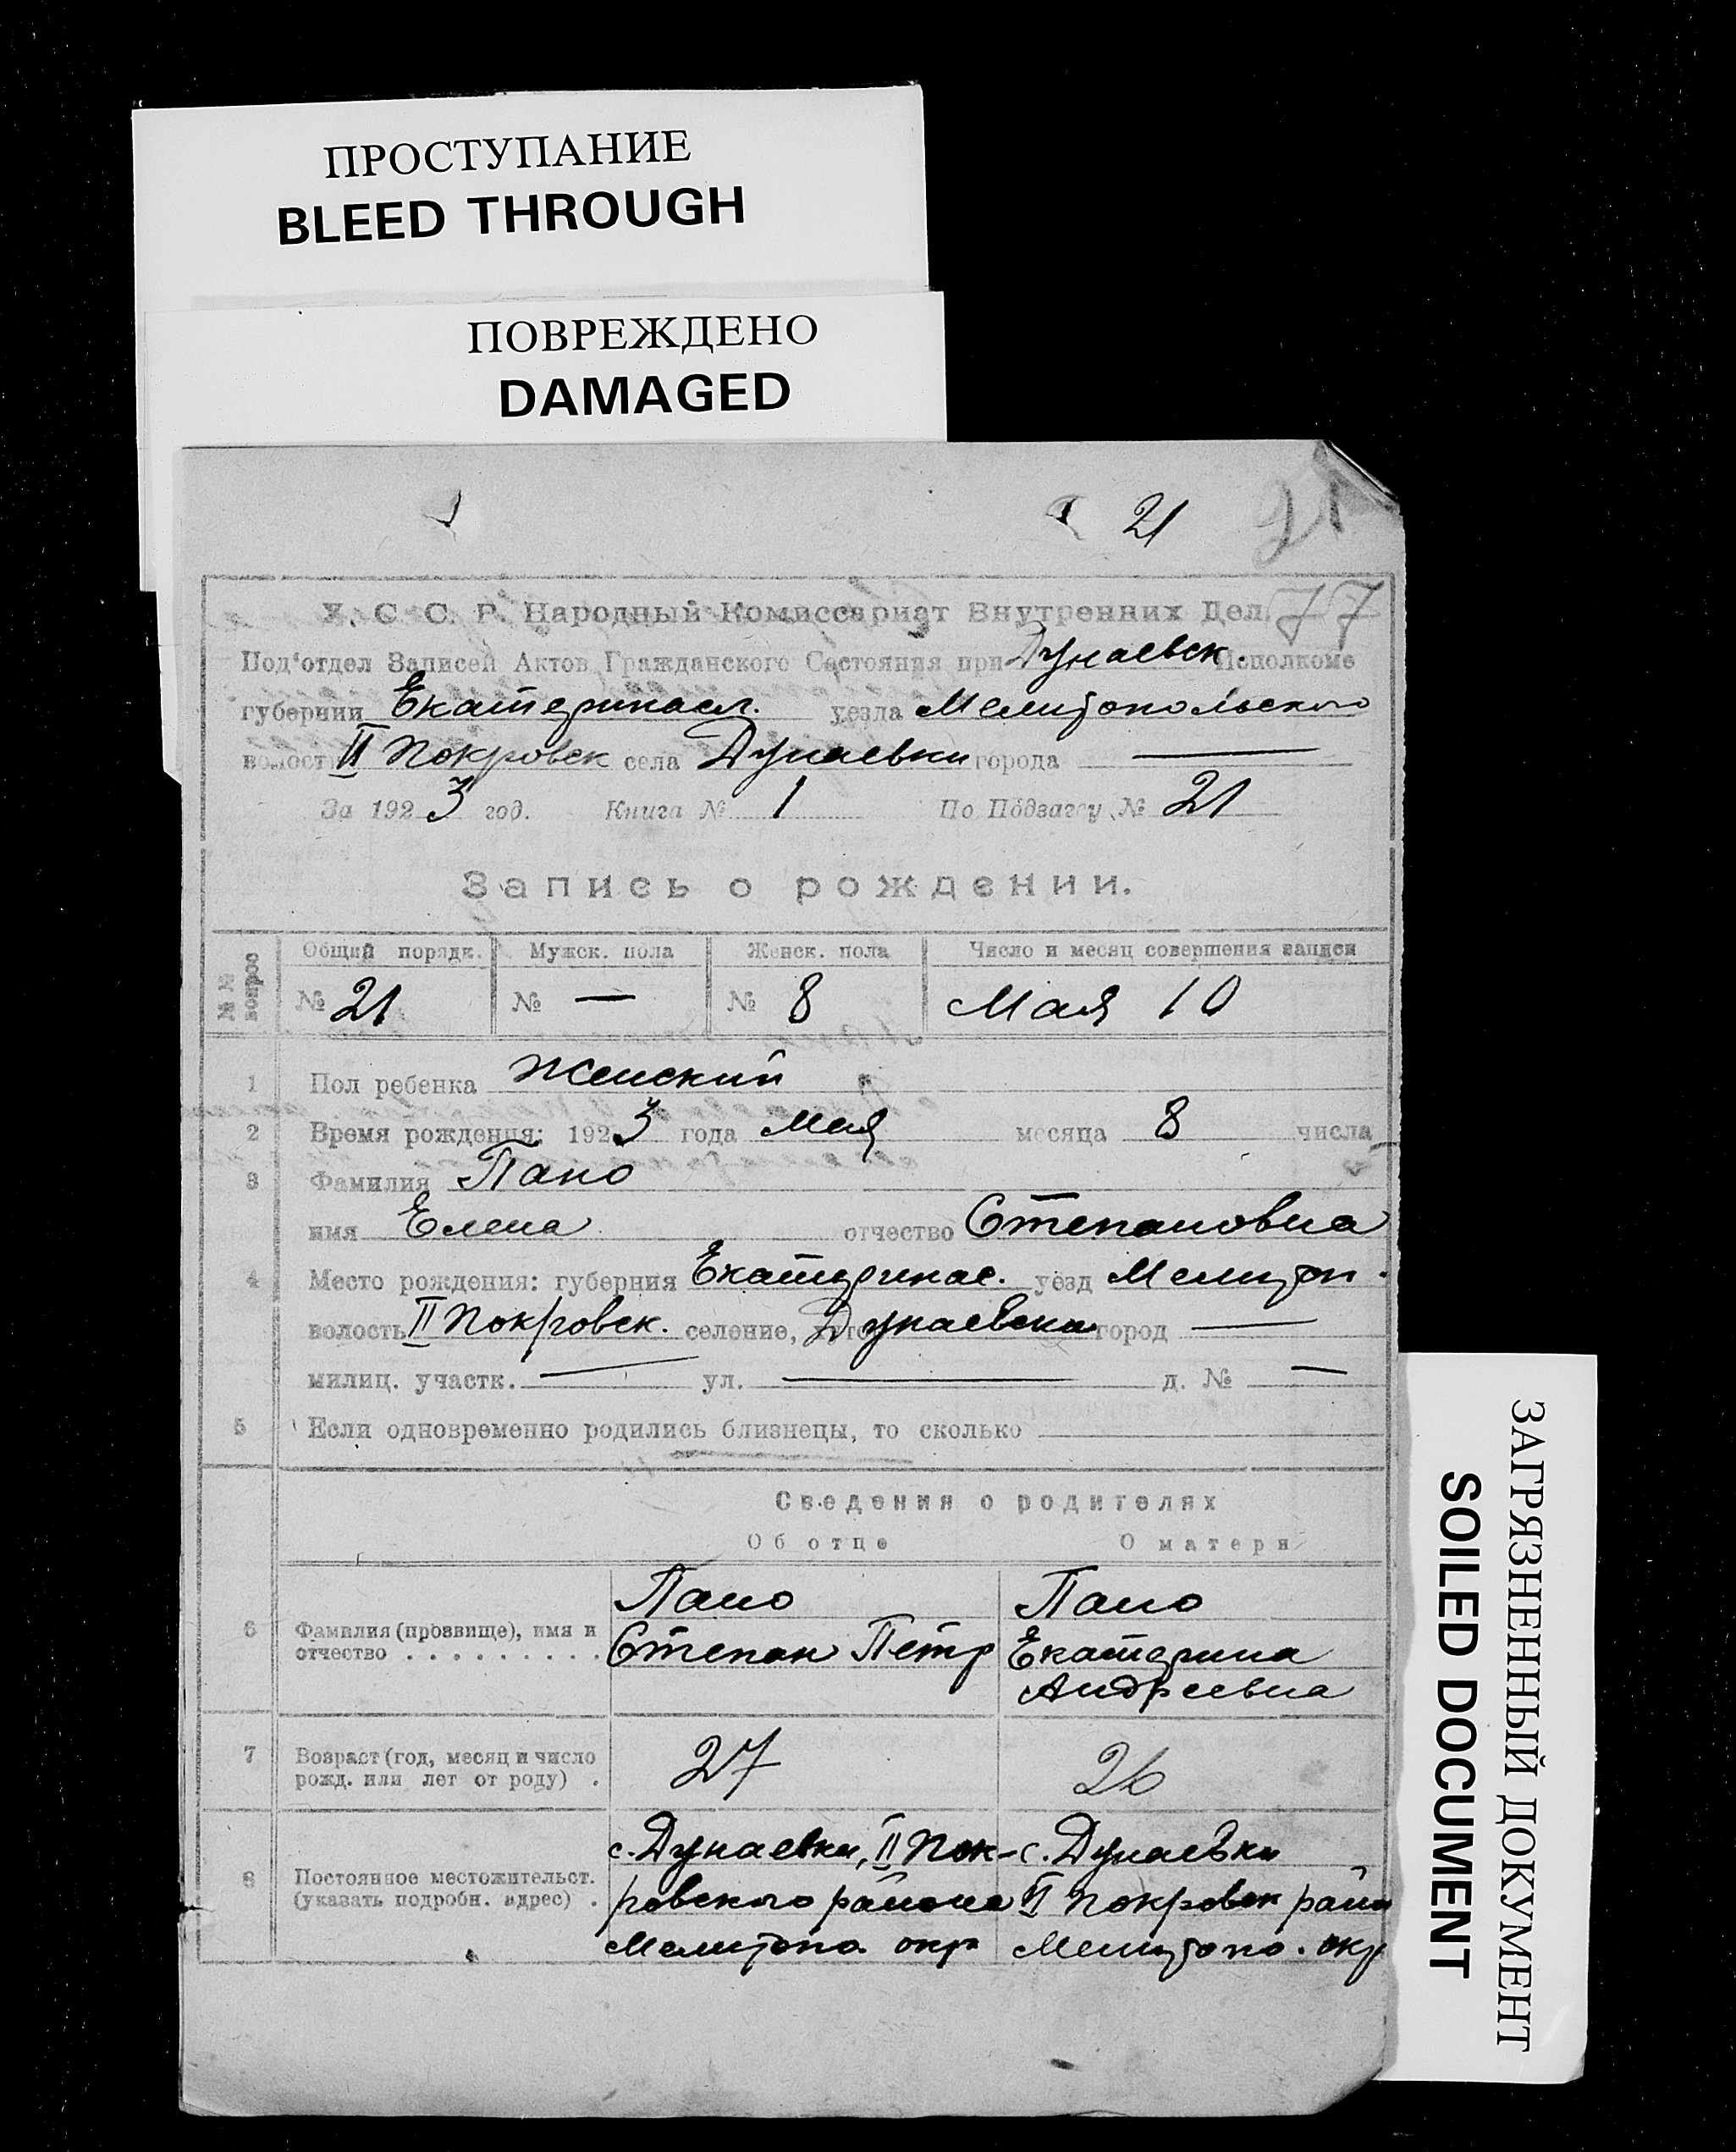 ПРОСТУПАНИЕ
BLEED THROUGH
ПОВРЕЖДЕНО
DAMAGED
21 21
У. С. С. Р. Народный Комиссариат Внутренних Дел. 77
Под'отдел Записей Актов Гражданского Состояния при Дунаевск. Исполкоме
губернии Екатеринасл. уезда Мелитопольского
волост II Покровск села Дунаевки города —
За 1923 год. Книга № 1 По Подзагсу № 21
Запись о рождении.
№№ вопрос Общий порядк. Мужск. пола Женск. пола Число и месяц совершения записи
№ 21 № — № 8 Мая 10
1 Пол ребенка Женский
2 Время рождения: 1923 года Мая месяца 8 числа
3 Фамилия Пано
имя Елена отчество Степановна
4 Место рождения: губерния Екатеринас. уезд Мелитоп.
волость II Покровск. селение, Дунаевка город —
милиц. участк. — ул. — д. № —
5 Если одновременно родились близнецы, то сколько
Сведения о родителях
Об отце О матери
Пано Пано
6 Фамилия (прозвище), имя и отчество . . . . . . . . . Степан Петр Екатерина
Андреевна
7 Возраст (год, месяц и число рожд. или лет от роду) . 27 26
с. Дунаевки, II Пок- с. Дунаевки
8 Постоянное местожительст. (указать подробн. адрес) . ровского района II Покровск райо
Мелитопо. окр Мелитопо. окр
ЗАГРЯЗНЕННЫЙ ДОКУМЕНТ
SOILED DOCUMENT